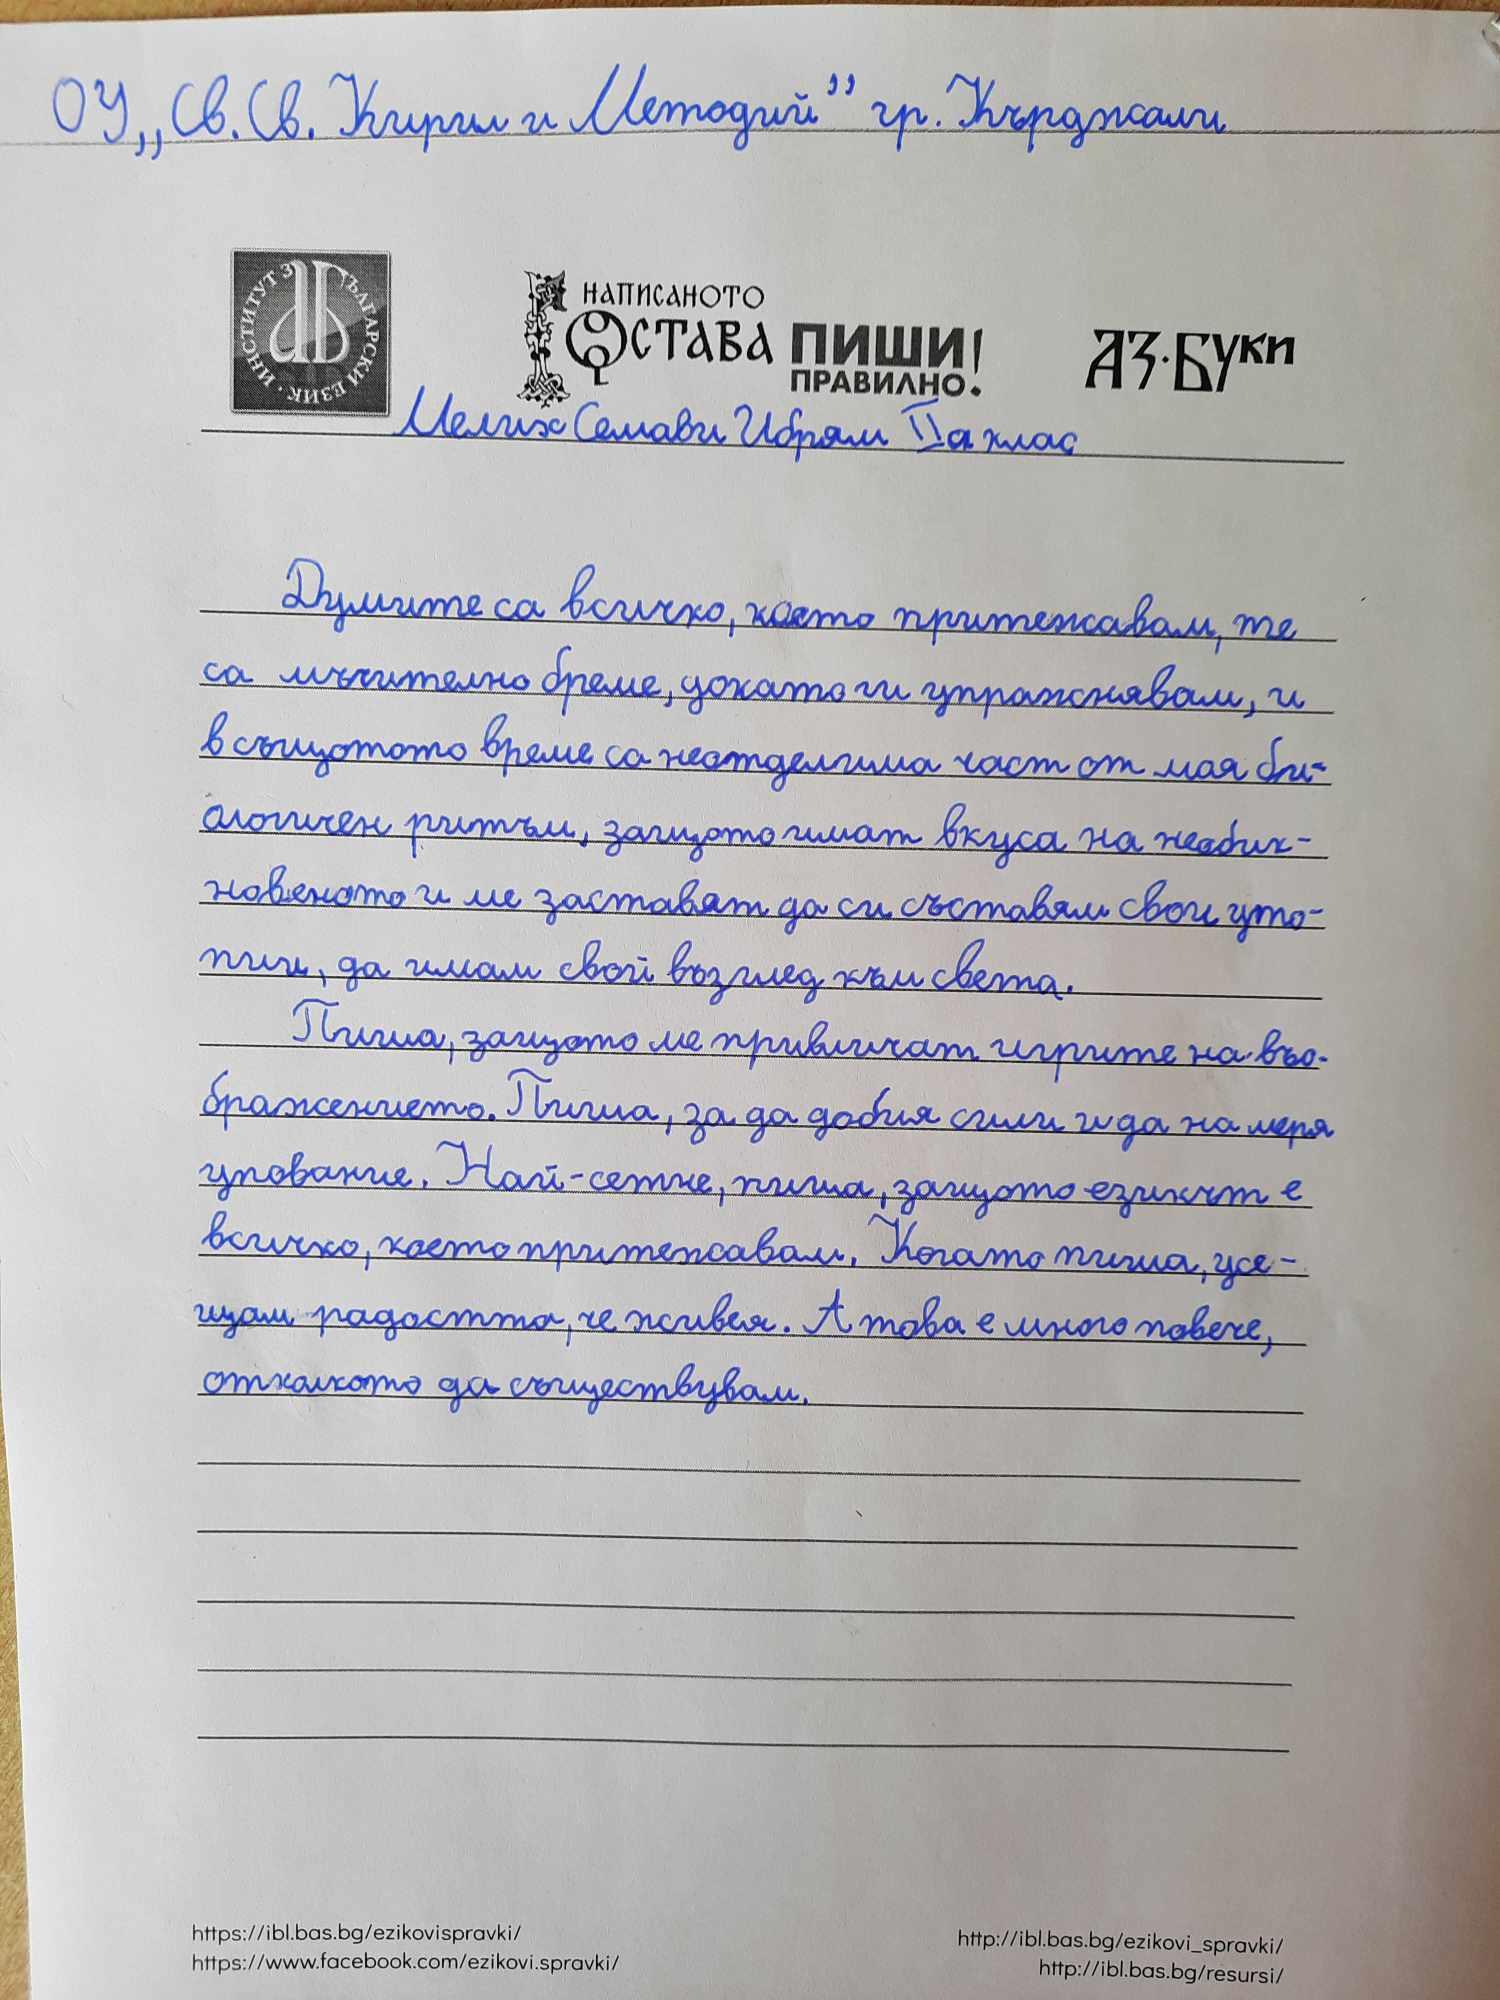 ОУ „Св. Св. Кирил и Методий” гр. Кърджали
ИНСТИТУТ ЗА БЪЛГАРСКИ ЕЗИК
НАПИСАНОТО
ОСТАВА ПИШИ!
ПРАВИЛНО!
АЗ·БУКИ
Мелих Семави Ибрям IIа клас
Думите са всичко, което притежавам, те
са мъчително бреме, докато ги упражнявам, и
в същотото време са неотделима част от мая би-
ологичен ритъм, защото имат вкуса на необик-
новеното и ме заставят да си съставям свои уто-
пии, да имам свой възглед към света.
Пиша, защото ме привличат игрите на въо-
бражението. Пиша, за да добия сили и да намеря
упование. Най-сетне, пиша, защото езикът е
всичко, което притежавам. Когато пиша, усе-
щам радостта, че живея. А това е много повече,
отколкото да съществувам.
https://ibl.bas.bg/ezikovispravki/
https://www.facebook.com/ezikovi.spravki/
http://ibl.bas.bg/ezikovi_spravki/
http://ibl.bas.bg/resursi/